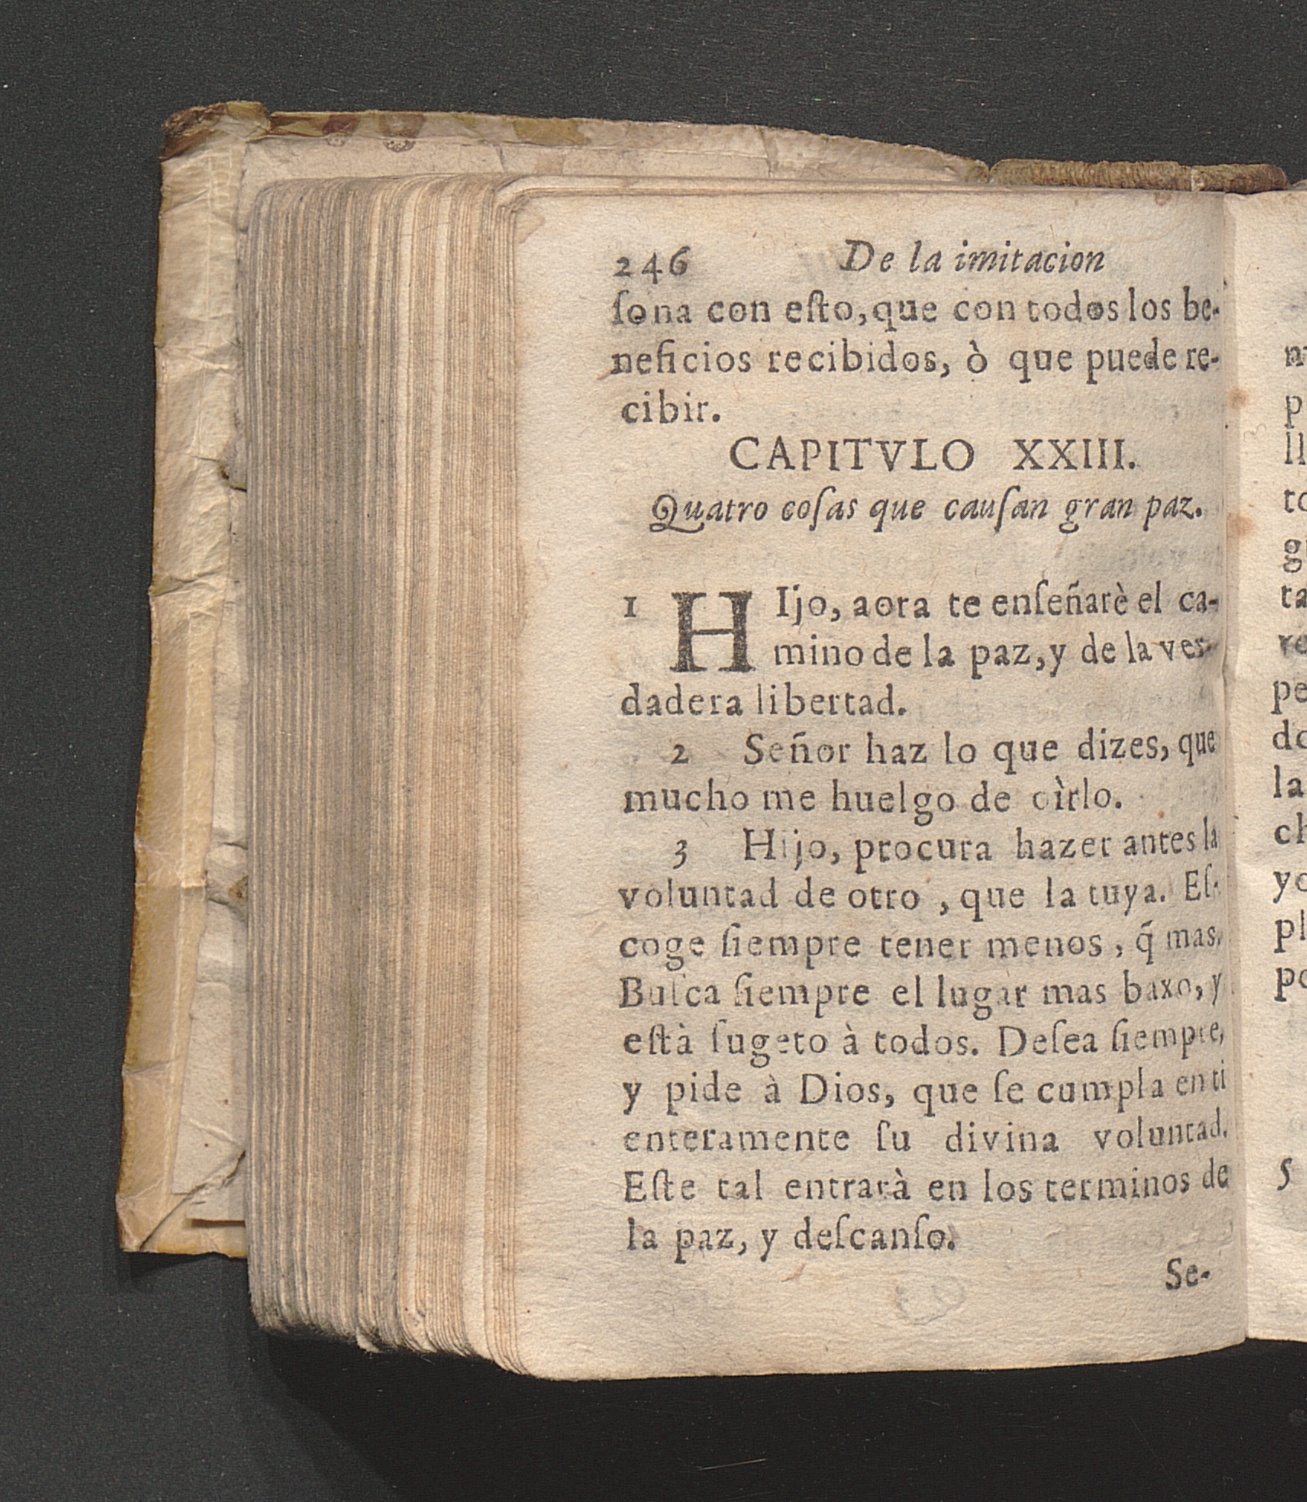 246 De la imitacion
ſona con eſto, que con todos los be-
neficios recibidos, ò que puede re-
cibir.
CAPITVLO XXIII.
Quatro coſas que cauſan gran paz.
1 HIjo, aora te enſeñarè el ca-
mino de la paz, y de la ver-
dadera libertad.
2 Señor haz lo que dizes, que
mucho me huelgo de oìrlo.
3 Hijo, procura hazer antes la
voluntad de otro, que la tuya. Eſ-
coge ſiempre tener menos, q̃ mas.
Buſca ſiempre el lugar mas baxo, y
eſtà ſugeto à todos. Deſea ſiempre,
y pide à Dios, que ſe cumpla en ti
enteramente ſu divina voluntad.
Eſte tal entrarà en los terminos de
la paz, y deſcanſo.
Se-